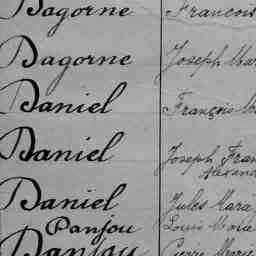 Dagorne Francois
Dagorne Joseph Mar
Daniel François M
Daniel Joseph Fran
Alexand
Daniel Jules Mara
Panjou Louis Marie
Danjau Pierre Marie